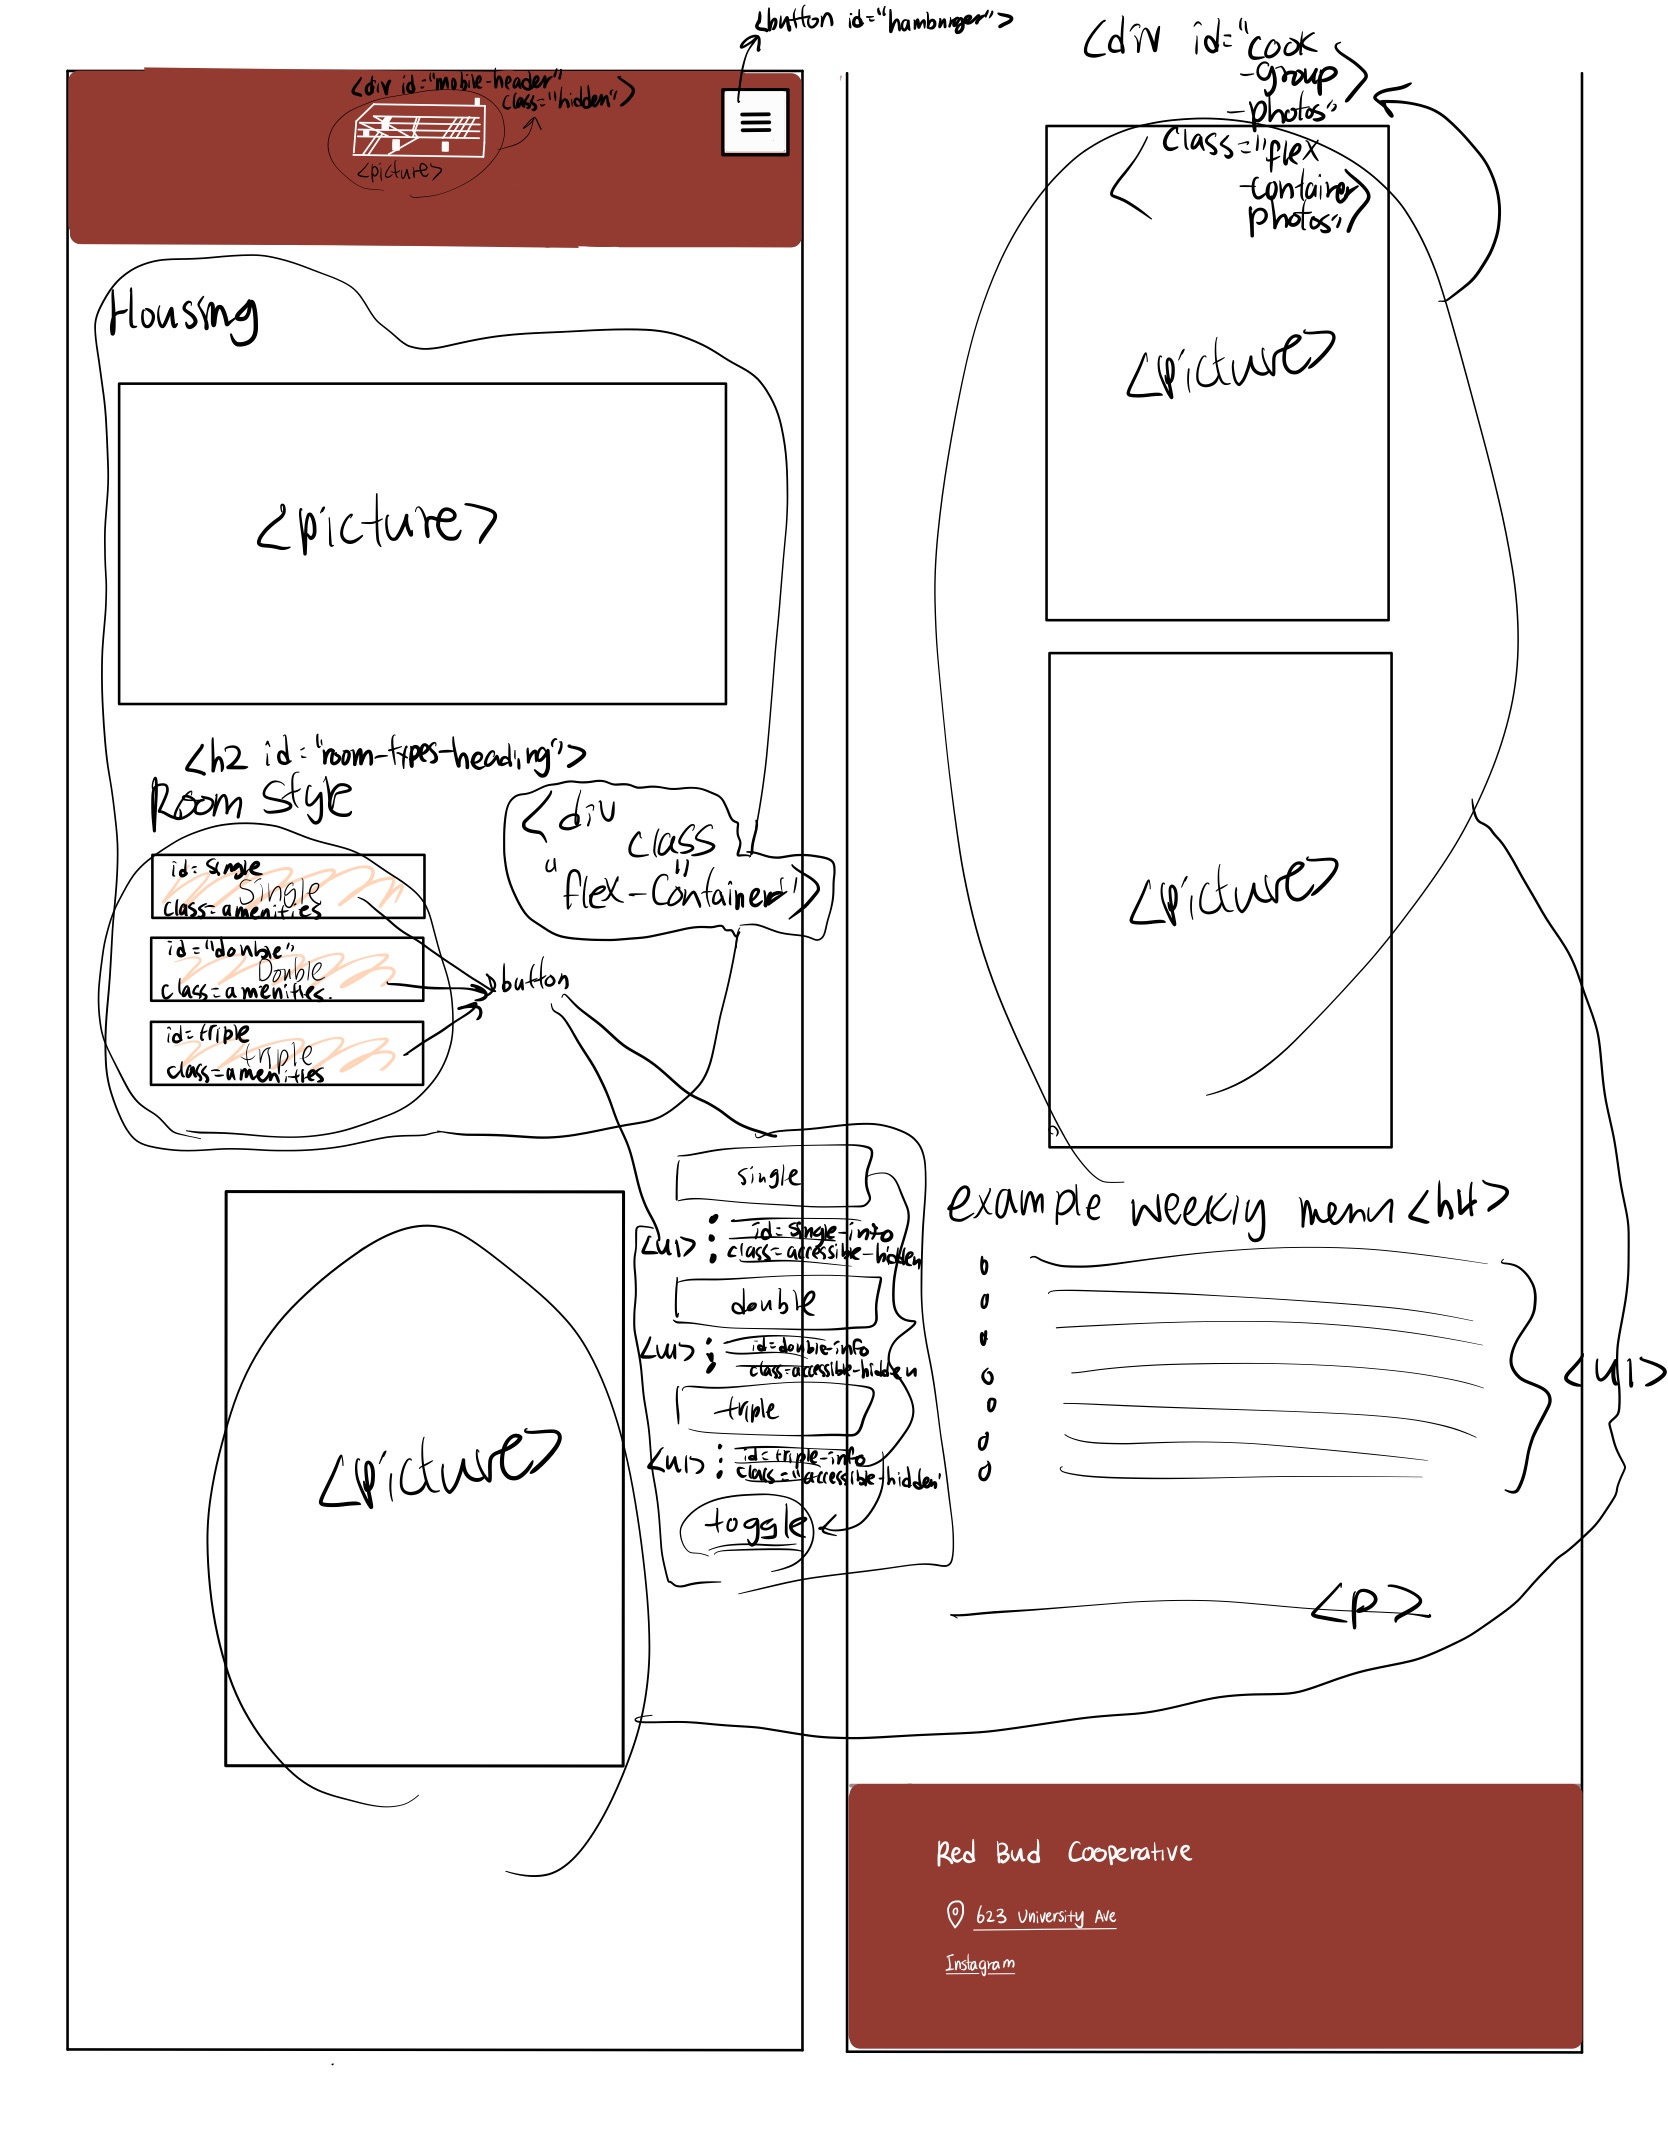 <button id="hamburger">
<div id="mobile-header"
class="hidden">
<picture>
Housing
<picture>
<h2 id="room-types-heading">
Room Style
<div
class
"flex-container">
id=single
Single
class=amenities
id="double"
Double
class=amenities.
id=triple
triple
class=amenities
button
single
<ul>
id=single-info
class=accessible-hidden
double
<ul>
id=double-info
class=accessible-hidden
triple
<ul>
id=triple-info
class="accessible-hidden'
toggle
<picture>
<div id="cook
-group
-photos"
>
<
class="flex
-container
photos">
<picture>
<picture>
example weekly menu <h4>
<ul>
<p>
Red Bud Cooperative
623 University Ave
Instagram